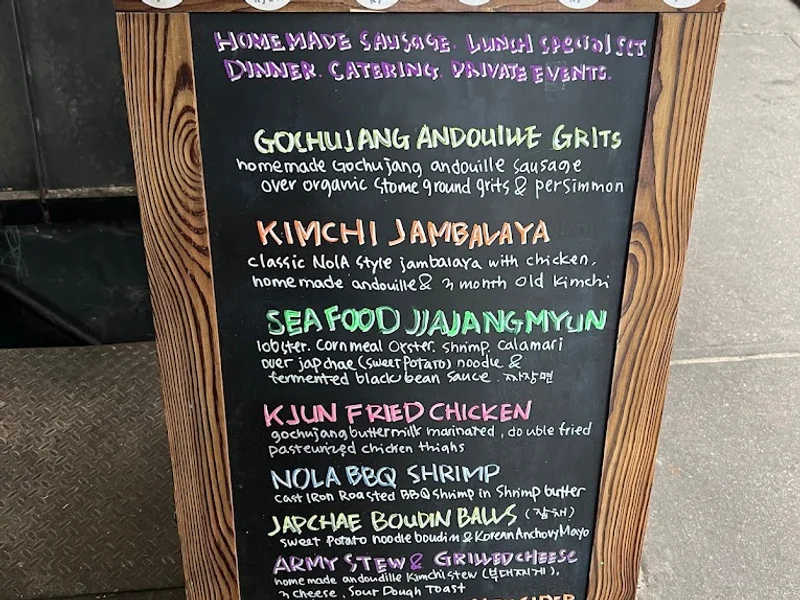 HOMEMADE SAUSAGE. LUNCH SPECIAL SET.
DINNER. CATERING. PRIVATE EVENTS.
GOCHUJANG ANDOUILLE GRITS
homemade Gochujang andouille sausage
over organic Stone ground grits & persimmon
KIMCHI JAMBALAYA
classic NOLA Style jambalaya with chicken,
homemade andouille & 3 month old Kimchi
SEAFOOD JJAJANGMYUN
lobster. Cornmeal Oyster. Shrimp. Calamari
over japchae (sweet potato) noodle &
fermented black bean sauce. 짜장면
KJUN FRIED CHICKEN
gochujang buttermilk marinated, double fried
pasteurized chicken thighs
NOLA BBQ SHRIMP
cast IRON Roasted BBQ shrimp in Shrimp butter
JAPCHAE BOUDIN BALLS (잡채)
sweet potato noodle boudin & Korean Anchovy Mayo
ARMY STEW & GRILLED CHEESE
homemade andoudille Kimchi stew (부대찌게),
3 cheese, Sour Dough Toast